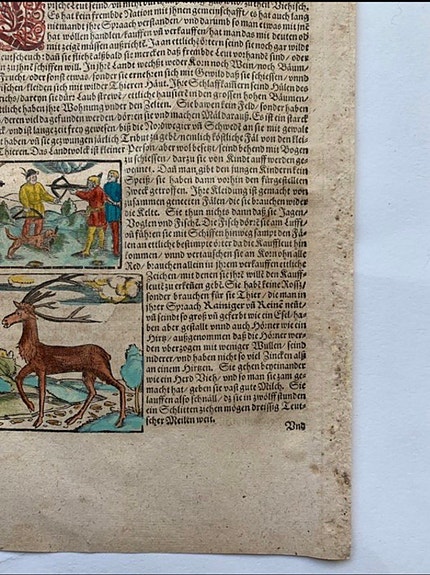 Es hat kein frembde Nation mit ihnen gemeinschafft / es hat auch lang
niemandt ihre Spraach verstanden / und darumb so man etwas mit jnẽ
hat wöllen handlen / kauffen uñ verkauffen / hat man das mit deuten oď
mit zeigẽ müssen außricht. Ja an ettlichẽ örtern seind sie noch gar wild
deutscheuch / daß sie sich alßbald sie mercken / daß frembde Leut vorhandẽ sind / oder
an zu jhnẽ schiffen will. In jhrẽ Landt wechßt weder Korn noch Wein / noch Bäum /
Frucht / oder sonst etwas / sonder sie ernehren sich mit Gewild daß sie schiessen / unnd
Fischen / kleiden sich mit wilder Thieren Häut. Ihre Schlaffkamern seind Hülen des
/ darein sie dürr Laub strewẽ / ettliche hausiert in den grossen holen Bäumen /
ettliche haben ihre Wohnung under den Zelten. Sie bawen kein Feld / sonder
deren viel da gefunden werden / dörren sie und machen Mäl darauß. Es ist ein starck
/ und ist lang zeit frey gewesen / biß die Nordwegier uñ Schweden an sie mit gewalt
haben / uñ sie gezwungen järlich Tribut zu gebẽ / nemlich köstliche Fäl von den
Thieren. Das Landvolck ist kleiner Person / aber wol besetzt / seind behend mit Bogen
zu schiessen / darzu sie von Kindt auff werden ge-
wennet. Dañ man gibt den jungen Kindern kein
Speiß / sie haben dann vorhin den fürgestelten
Zweck getroffen. Ihre Kleidung ist gemacht von
zusammen geneiten Fälen / die sie brauchen wider
die Kelte. Sie thun nichts dann daß sie Jagen /
Voglen und Fischẽ. Die Fisch dörrẽ sie am Lufft /
uñ führen sie mit Schiffen hinweg sampt den Fä-
len an ettliche bestimpte örter da die Kauffleut hin
kommen / unnd vertauschen sie an Korn ohn alle
Red / brauchen allein in jhrem verkauffen ettliche
Zeichen / mit denen sie jhrẽ will den Kauff-
leutẽ zu erkeñen gebẽ. Sie habẽ keine Rossz /
sonder brauchen für sie Thier / die man in
jhrer Spraach Rainiger uñ Reine neñt /
uñ seindt so groß uñ geferbt wie ein Esel / ha-
ben aber gestallt unnd auch Hörner wie ein
Hirtz / außgenommen daß die Hörner wer-
den uberzogen mit weniger Wullen / seind
niderer / und haben nicht so viel Zincken alß
an einem Hirtzen. Sie gehen beyeinander
wie ein Herd Vieh / und so man sie zam ge-
macht hat / geben sie vast gute Milch. Sie
lauffen also schnäll / dz sie in zwölff stunden
ein Schlitten ziehen mögen dreissig Teut-
scher Meilen weit.
Und